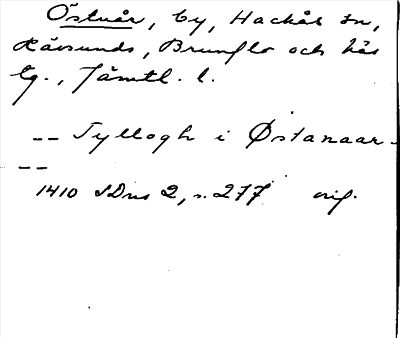 Östnår, by, Hackås sn,
Rävsunds, Brunflo och Näs
tg., Jämtl. l.
-- Tyllogh i Østanaar -
--
1410 SDns 2, s. 277 orig.